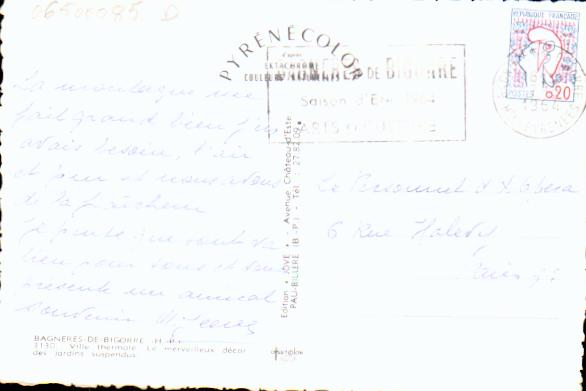 06500085 D
PYRÉNÉCOLOR
d'après
EKTACHROME
BAGNÈRES DE BIGORRE
Saison d'Eté 1964
REPUBLIQUE FRANÇAISE
POSTES 0,20
1964
La montagne me
fait grand bien j'en
avais besoin, l'air
est pur et nous avons
de la fraîcheur
Je pense que tout va
bien pour vous et vous
présente un amical
souvenir
Le Personnel de l'Opéra
6 Rue Halevy
Paris 9e
Edition * JOVE * - Avenue Château-d'Este
PAU-BILLERE (B.-P.) - Tél. : 27.82.09
BAGNERES-DE-BIGORRE (H.-P.)
3130. Ville thermale. Le merveilleux décor
des jardins suspendus.